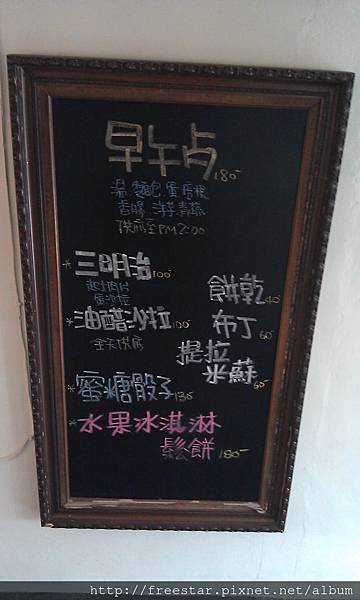 早午点 180-
湯.麵包.蛋.唇根
香腸.洋芋.青蔬
供應至PM2:00
*三明治 100-
起司片
蛋沙拉
餅乾 40
*油醋沙拉 100-
全天供應
布丁 60-
提拉
米蘇 60-
*蜜糖骰子 130-
*水果冰淇淋
鬆餅 180-
http://freestar.pixnet.net/album